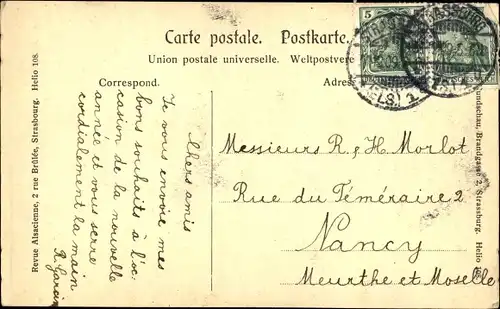 Carte postale. Postkarte.
Union postale universelle. Weltpostvere
Correspond.
Adres
5
5
STRASSBURG
Chers amis
Je vous envoie mes
bons souhaits à l'oc-
casion de la nouvelle
année et vous serre
cordialement la main
R. Garcin
Messieurs R & H. Morlot
Rue du Téméraire 2
Nancy
Meurthe et Moselle
Revue Alsacienne, 2 rue Brûlée, Strasbourg. Helio 108.
undschau, Brandgasse 2, Strassburg. Helio